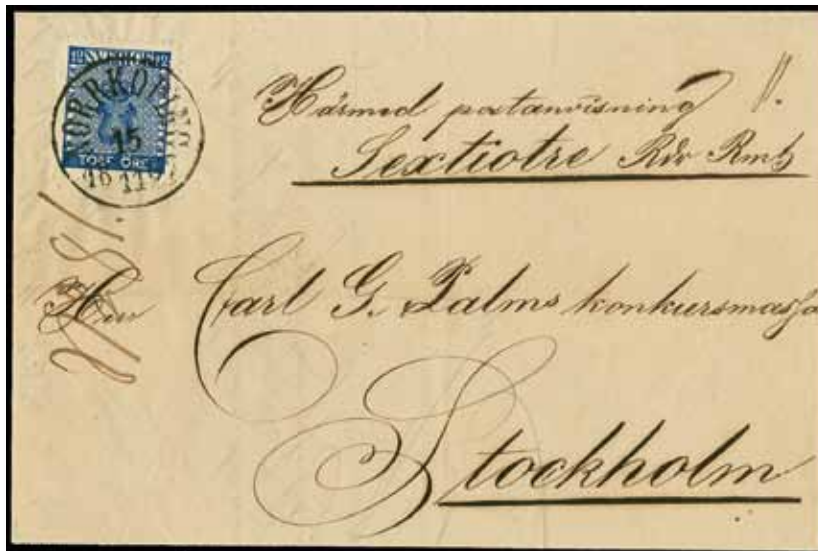 12 SVERIGE 12
NORRKÖPING
15
TOLF ÖRE
Härmed postanvisning
Sextiotre Rdr Rmt
Carl G. Palms konkursmassa
Stockholm